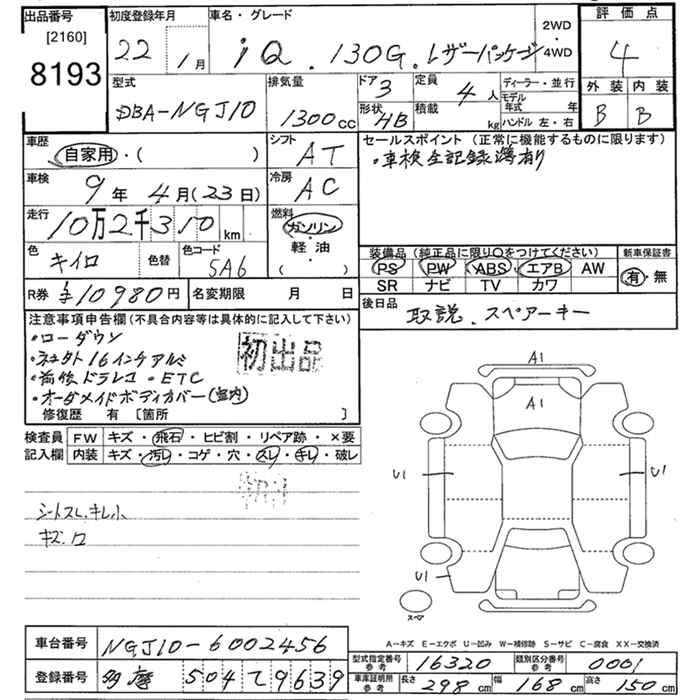 出品番号
[2160]
8193
初度登録年月
22年 1月
車名・グレード
iQ . 130G. レザーパッケージ
2WD
・
4WD
評価点
4
外装 内装
B B
型式
DBA-NGJ10
排気量
1300cc
ドア 3
形状 HB
定員 4人
積載 kg
ディーラー・並行
モデル年式 年
ハンドル 左・右
車歴
自家用・( )
シフト
AT
車検
9年 4月(23日)
冷房
AC
走行
10万2千310km
燃料
ガソリン
・
軽油
( )
色 キイロ
色替
色コード
5A6
R券 ¥10980円
名変期限 月 日
セールスポイント (正常に機能するものに限ります)
・車検全記録簿有り
装備品(純正品に限り○をつけてください)
PS PW ABS エアB AW
SR ナビ TV カワ
新車保証書
有・無
後日品
取説. スペアーキー
注意事項申告欄(不具合内容等は具体的に記入して下さい)
・ローダウン
16インチアルミ
・前後ドラレコ・ETC
・オーダメイドボディカバー(室内)
初出品
修復歴 有 [箇所 ]
検査員記入欄
FW キズ・飛石・ヒビ割・リペア跡・×要
内装 キズ・汚レ・コゲ・穴・スレ・キレ・破レ
シートスレ.キレ小
キズ.ワ
A1
A1
U1
U1
U1
スペア
A-キズ E-エクボ U-凹み W-補修跡 S-サビ C-腐食 XX-交換済
車台番号 NGJ10-6002456
登録番号 多摩 504 て 9639
型式指定番号 参考 16320
類別区分番号 参考 0001
車庫証明用 参考 長さ 298cm 幅 168cm 高さ 150cm